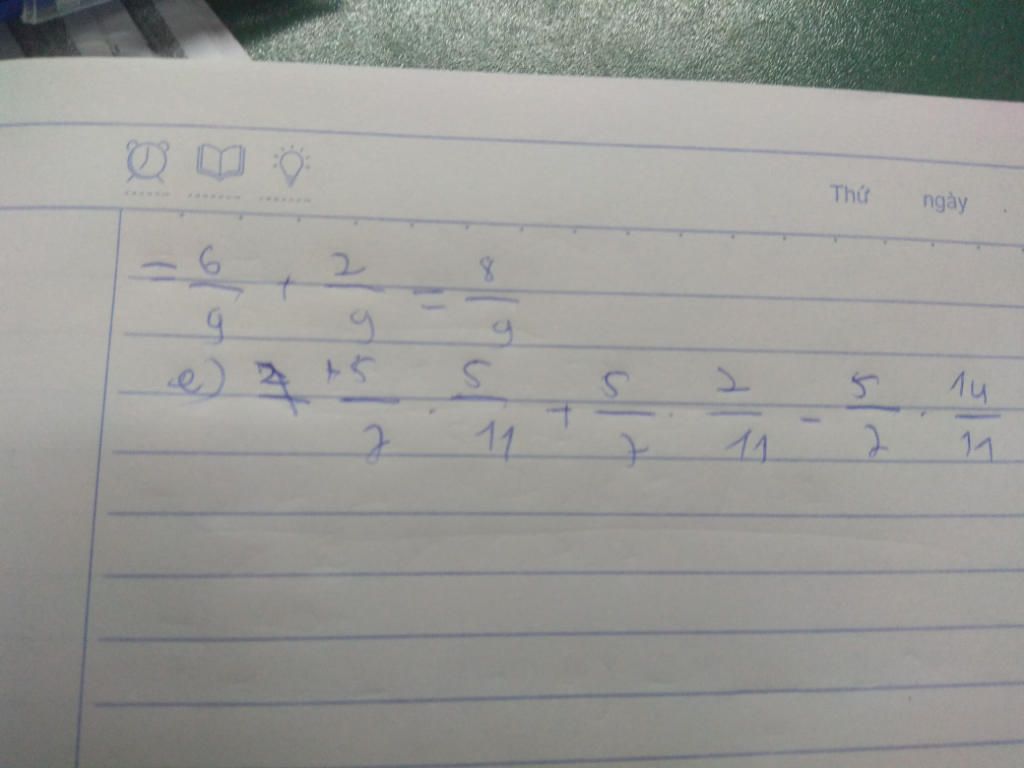 Thứ ngày
= 6/9 + 2/9 = 8/9
e) +5/7 . 5/11 + 5/7 . 2/11 - 5/7 . 14/11